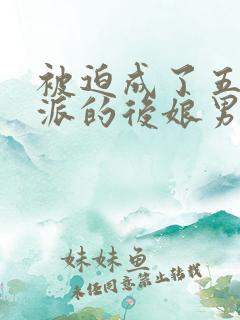 被迫成了五
派的後娘男
妹妹鱼
未经同意禁止转载